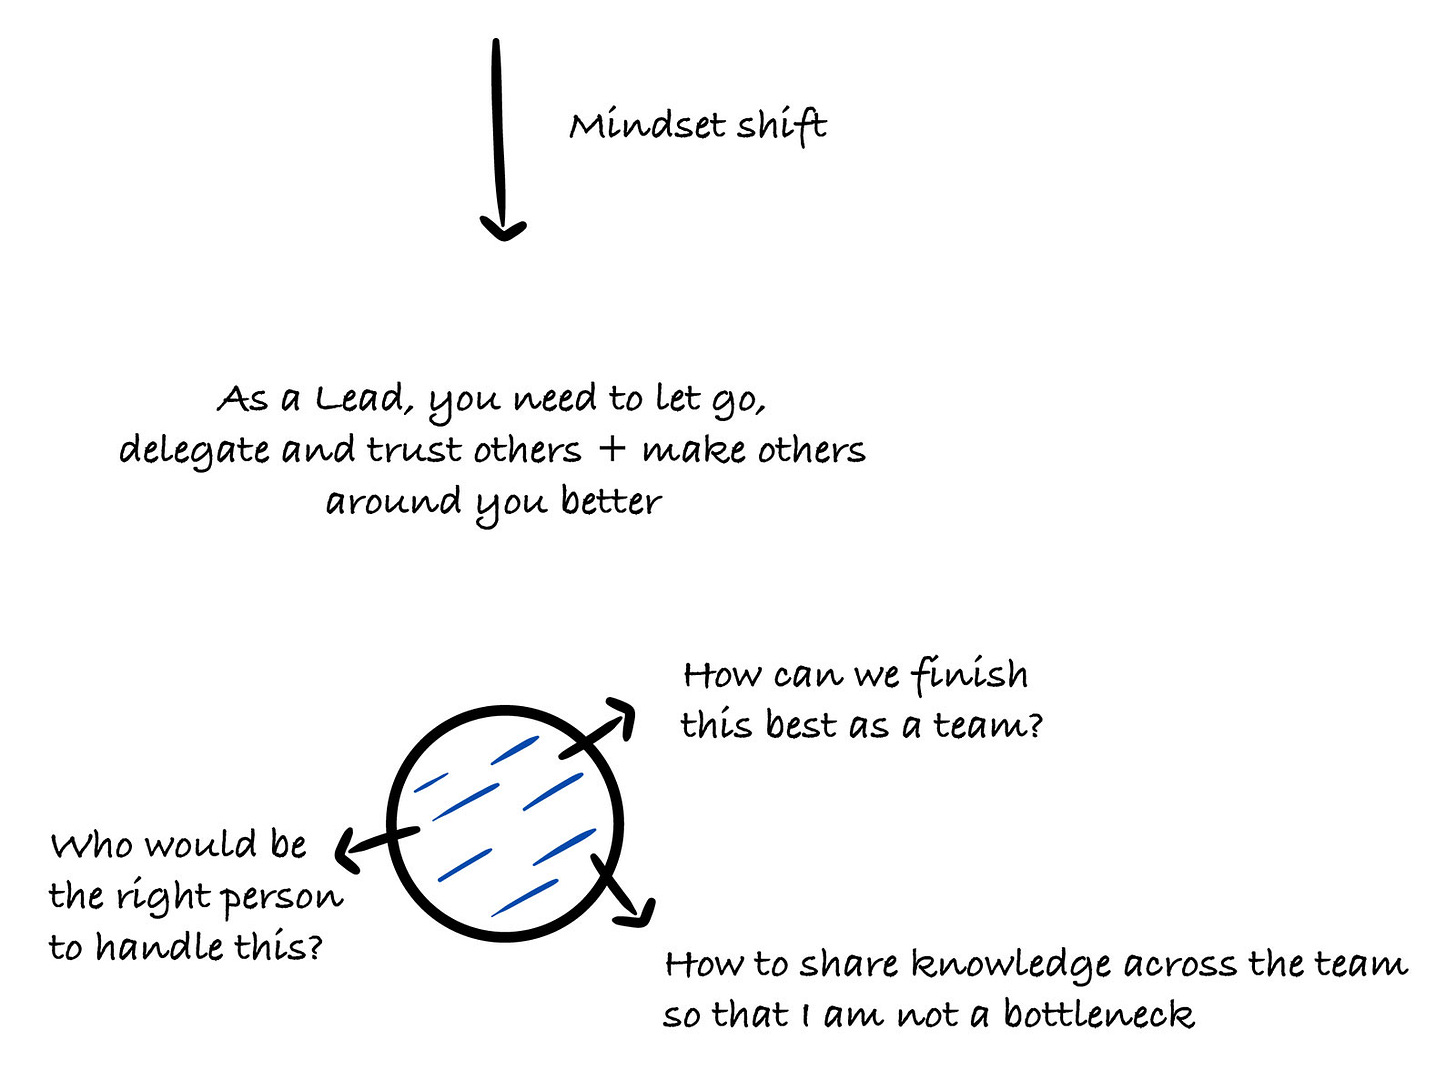 Mindset shift
As a Lead, you need to let go,
delegate and trust others + make others
around you better
How can we finish
this best as a team?
Who would be
the right person
to handle this?
How to share knowledge across the team
so that I am not a bottleneck